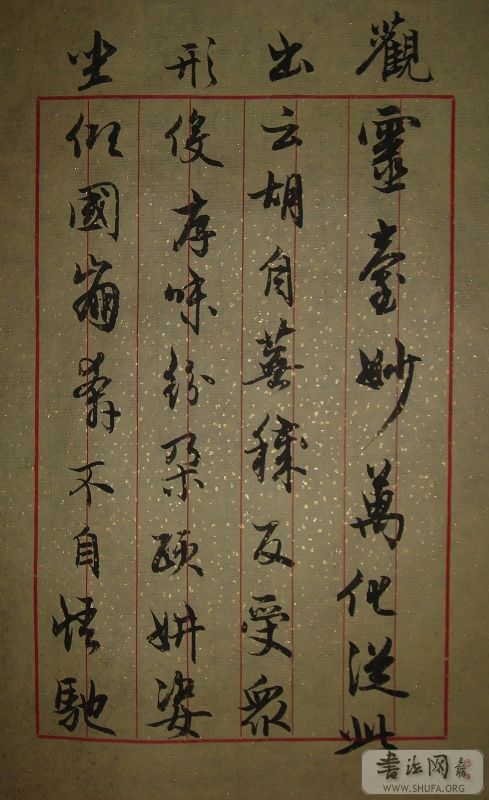 觀靈臺妙萬化從此
出云胡自蕪穢反受衆
形役厚味紛朵頤妍姿
坐傾國崩奔不自悟馳
書法网
WWW.SHUFA.ORG